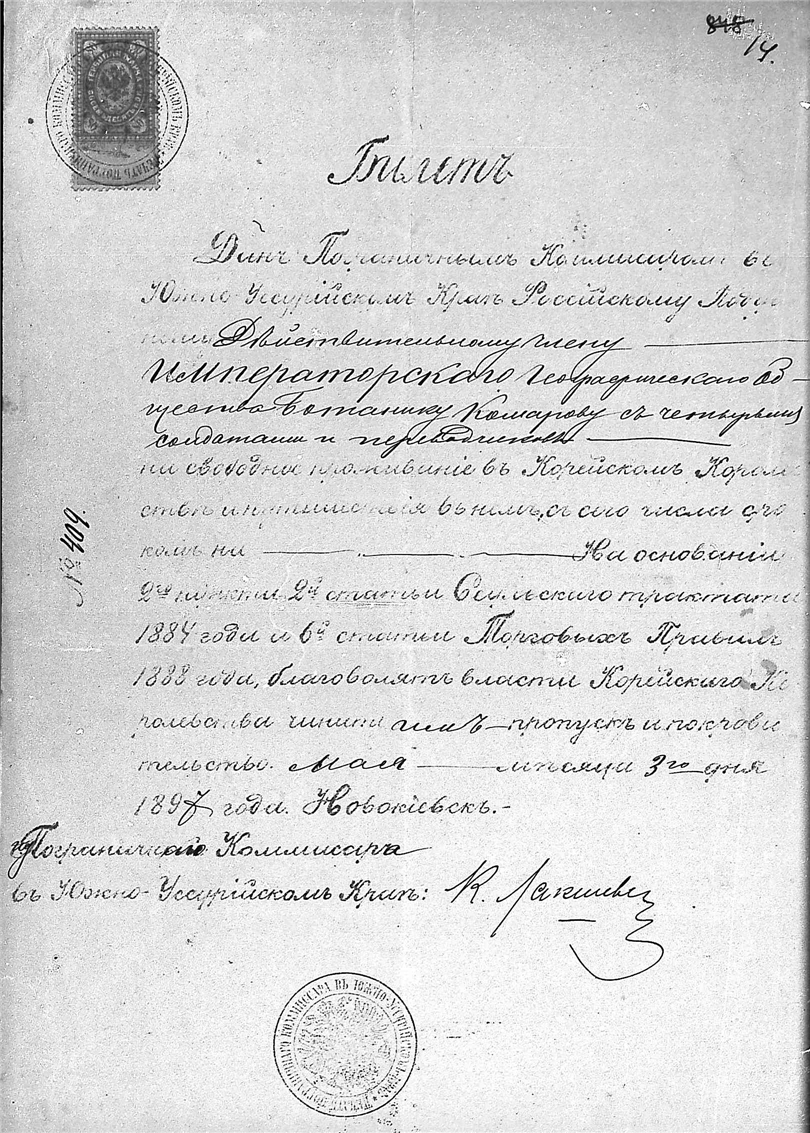 848 14.
Билетъ
Данъ Пограничнымъ Коммисаромъ въ
Южно-Уссурійскомъ Краѣ Россійскому Поддан
ному Дѣйствительному члену
Императорскаго Географическаго Об-
щества Ботанику Комарову съ четырьмя
солдатами и переводчикомъ
на свободное проживаніе въ Корейскомъ Королев
ствѣ и путешествія въ немъ, съ сего числа сро
комъ на На основаніи
2го пункта 2й статьи Сеульскаго трактата
1884 года и 6й статьи Торговыхъ Правилъ
1888 года, благоволятъ власти Корейскаго Ко
ролевства чинить имъ пропускъ и покрови
тельство. Мая мѣсяца 3го дня
1897 года. Новокіевскъ.-
Пограничнаго Коммисара
въ Южно-Уссурійскомъ Краѣ:
№ 409.
ПЕЧАТЬ ПОГРАНИЧНАГО КОММИССАРА ВЪ ЮЖНО-УССУРІЙСКОМЪ КРАѢ